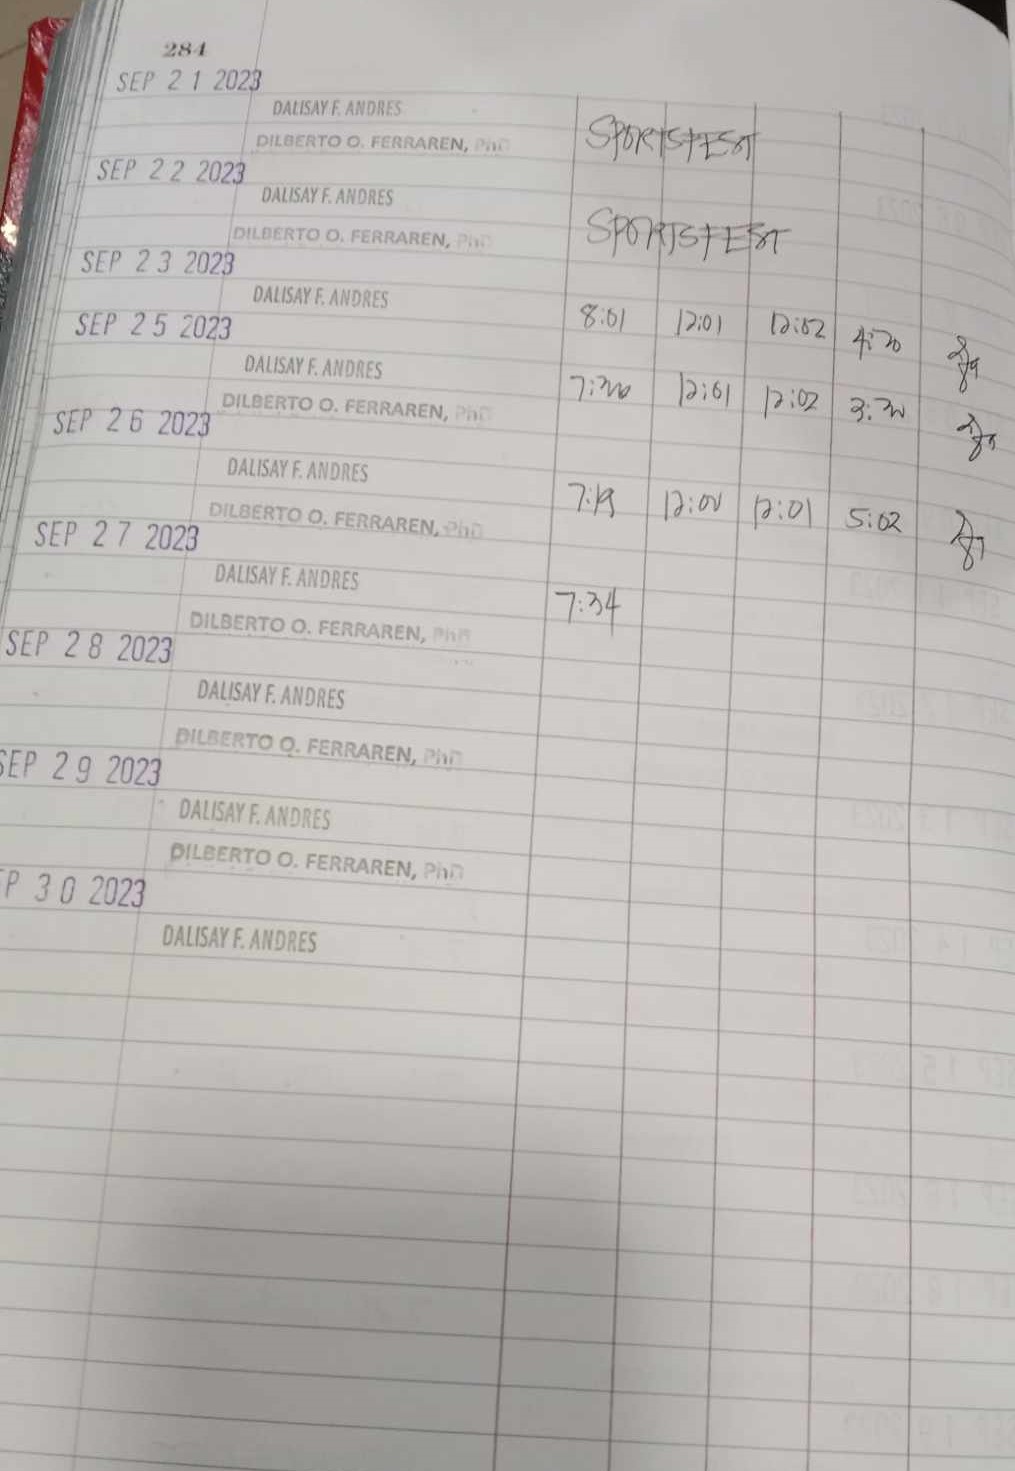 284
SEP 21 2023
DALISAY F. ANDRES
DILBERTO O. FERRAREN, PhD
SPORTSFEST
SEP 22 2023
DALISAY F. ANDRES
DILBERTO O. FERRAREN, PhD
SPORTSFEST
SEP 23 2023
DALISAY F. ANDRES 8:01 12:01 12:02 4:30
SEP 25 2023
DALISAY F. ANDRES 7:30 12:01 12:02 3:30
DILBERTO O. FERRAREN, PhD
SEP 26 2023
DALISAY F. ANDRES 7:19 12:00 12:01 5:02
DILBERTO O. FERRAREN, PhD
SEP 27 2023
DALISAY F. ANDRES 7:34
DILBERTO O. FERRAREN, PhD
SEP 28 2023
DALISAY F. ANDRES
DILBERTO O. FERRAREN, PhD
SEP 29 2023
DALISAY F. ANDRES
DILBERTO O. FERRAREN, PhD
EP 30 2023
DALISAY F. ANDRES